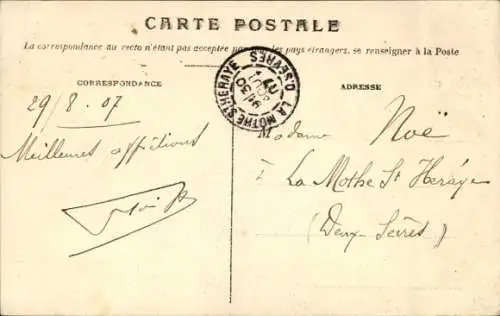 CARTE POSTALE
La correspondance au recto n'étant pas acceptée par les pays étrangers, se renseigner à la Poste
CORRESPONDANCE
ADRESSE
LA MOTHE-ST-HÉRAYE
D.SÈVRES
29/8.07
Meilleures affections
Madame Noë
La Mothe St Heraye
(Deux-Sèvres)